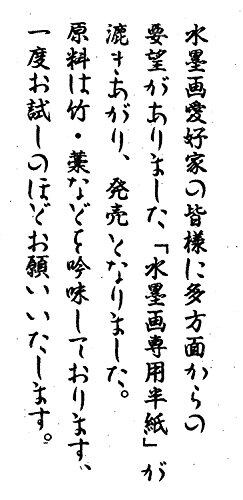 水墨画愛好家の皆様に多方面からの
要望がありました「水墨画専用半紙」が
漉きあがり、発売となりました。
原料は竹・藁などを吟味しております、
一度お試しのほどお願いいたします。